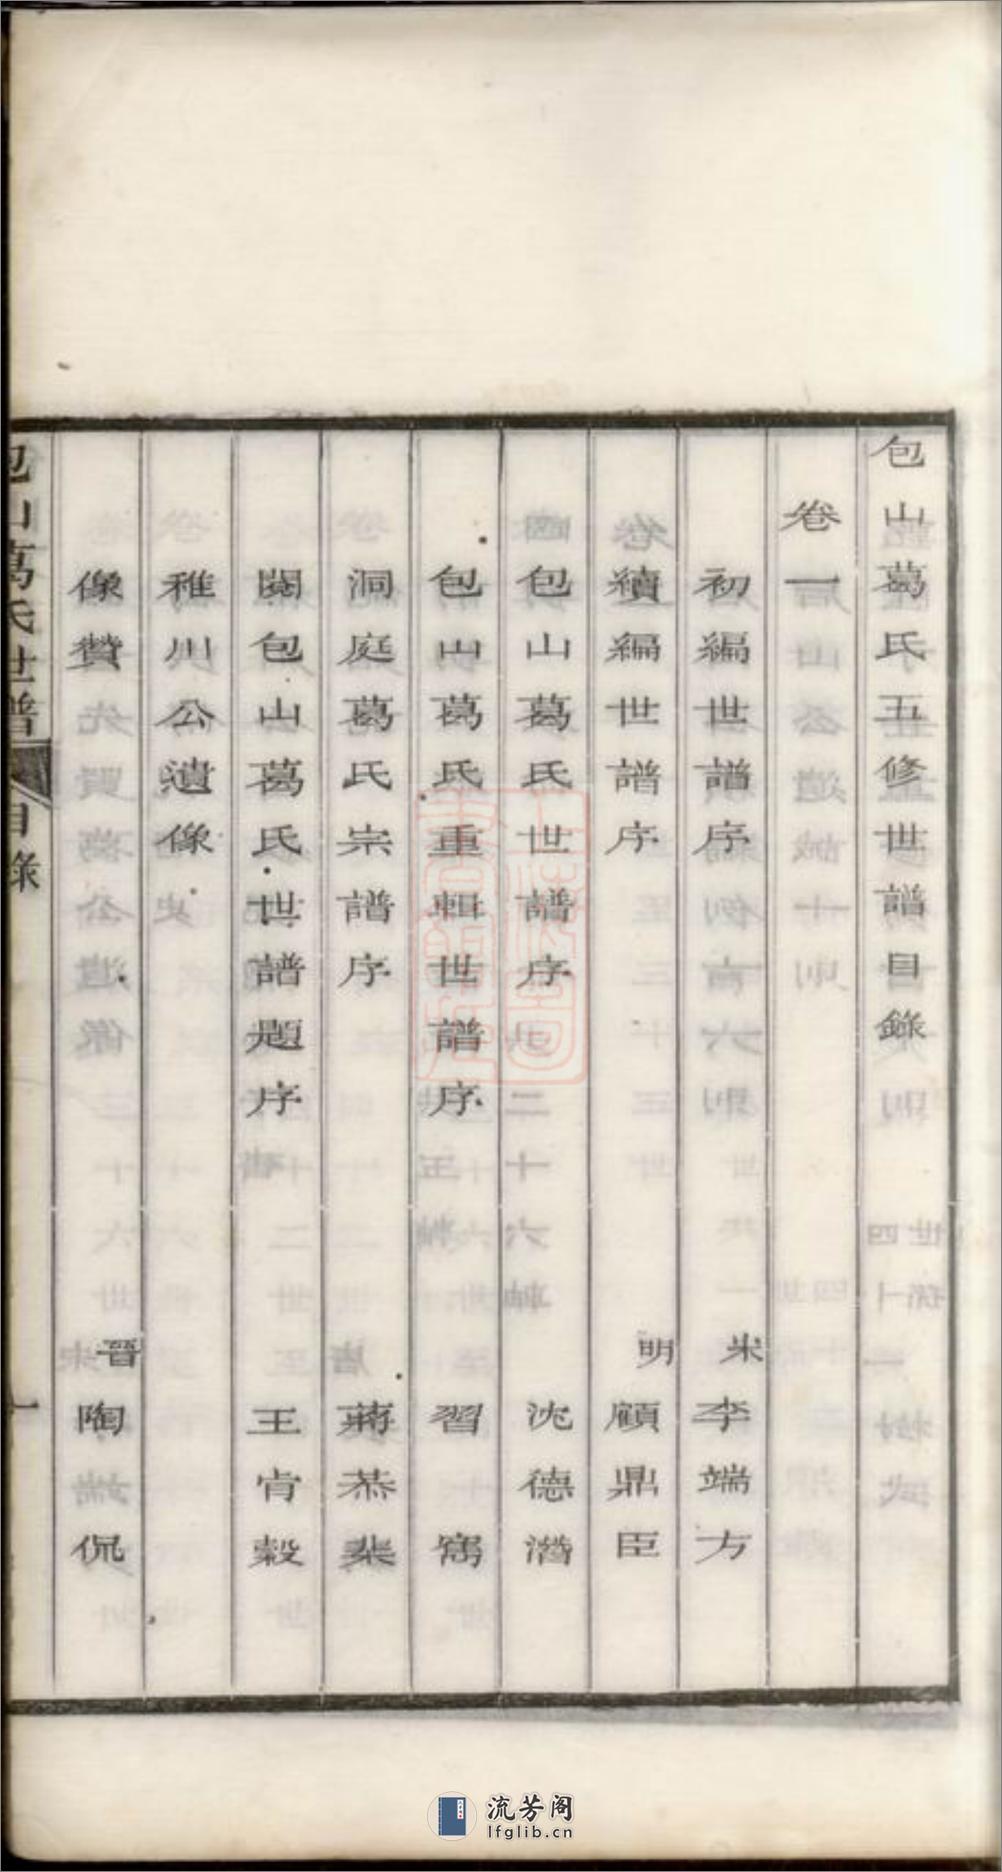 包山葛氏五修世譜目錄
卷一
初編世譜序 宋 李端方
續編世譜序 明 顧鼎臣
包山葛氏世譜序 沈德潛
包山葛氏重輯世譜序 習寯
洞庭葛氏宗譜序 蔣恭棐
閱包山葛氏世譜題序 王肯穀
稚川公遺像
像贊 晉 陶侃
包山葛氏世譜 目錄 一
流芳阁
lfglib.cn